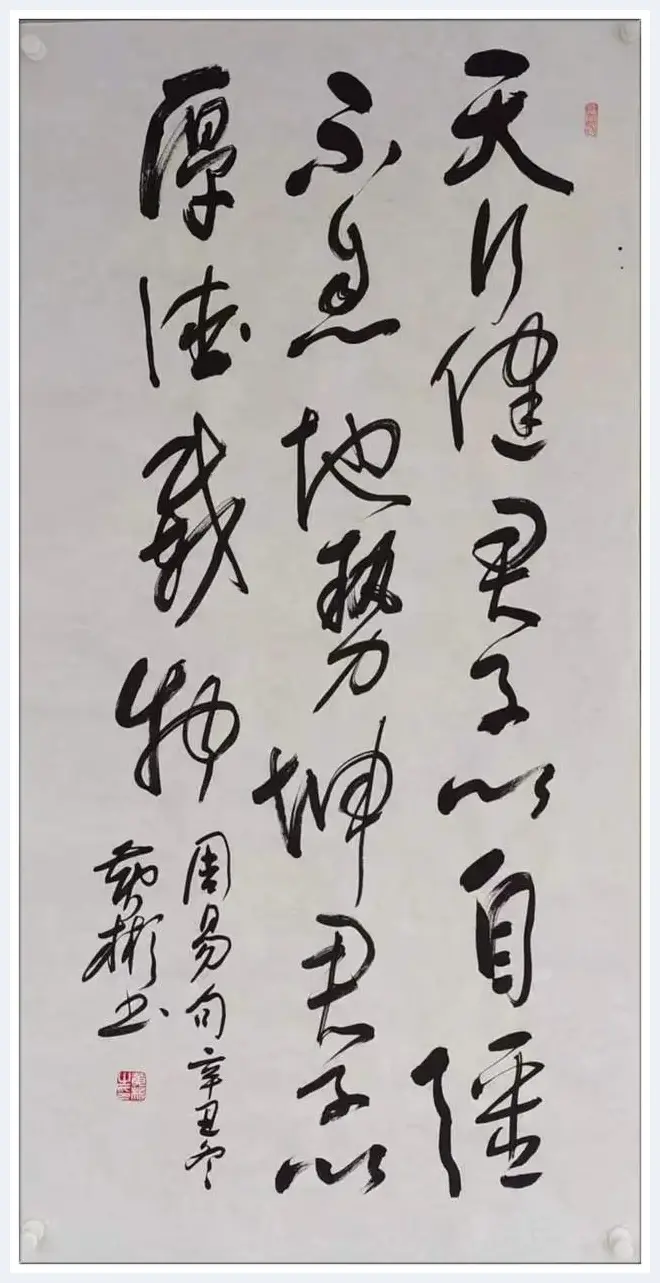 天行健君子以自彊
不息地势坤君子以
厚德载物
周易句辛丑冬
彬书